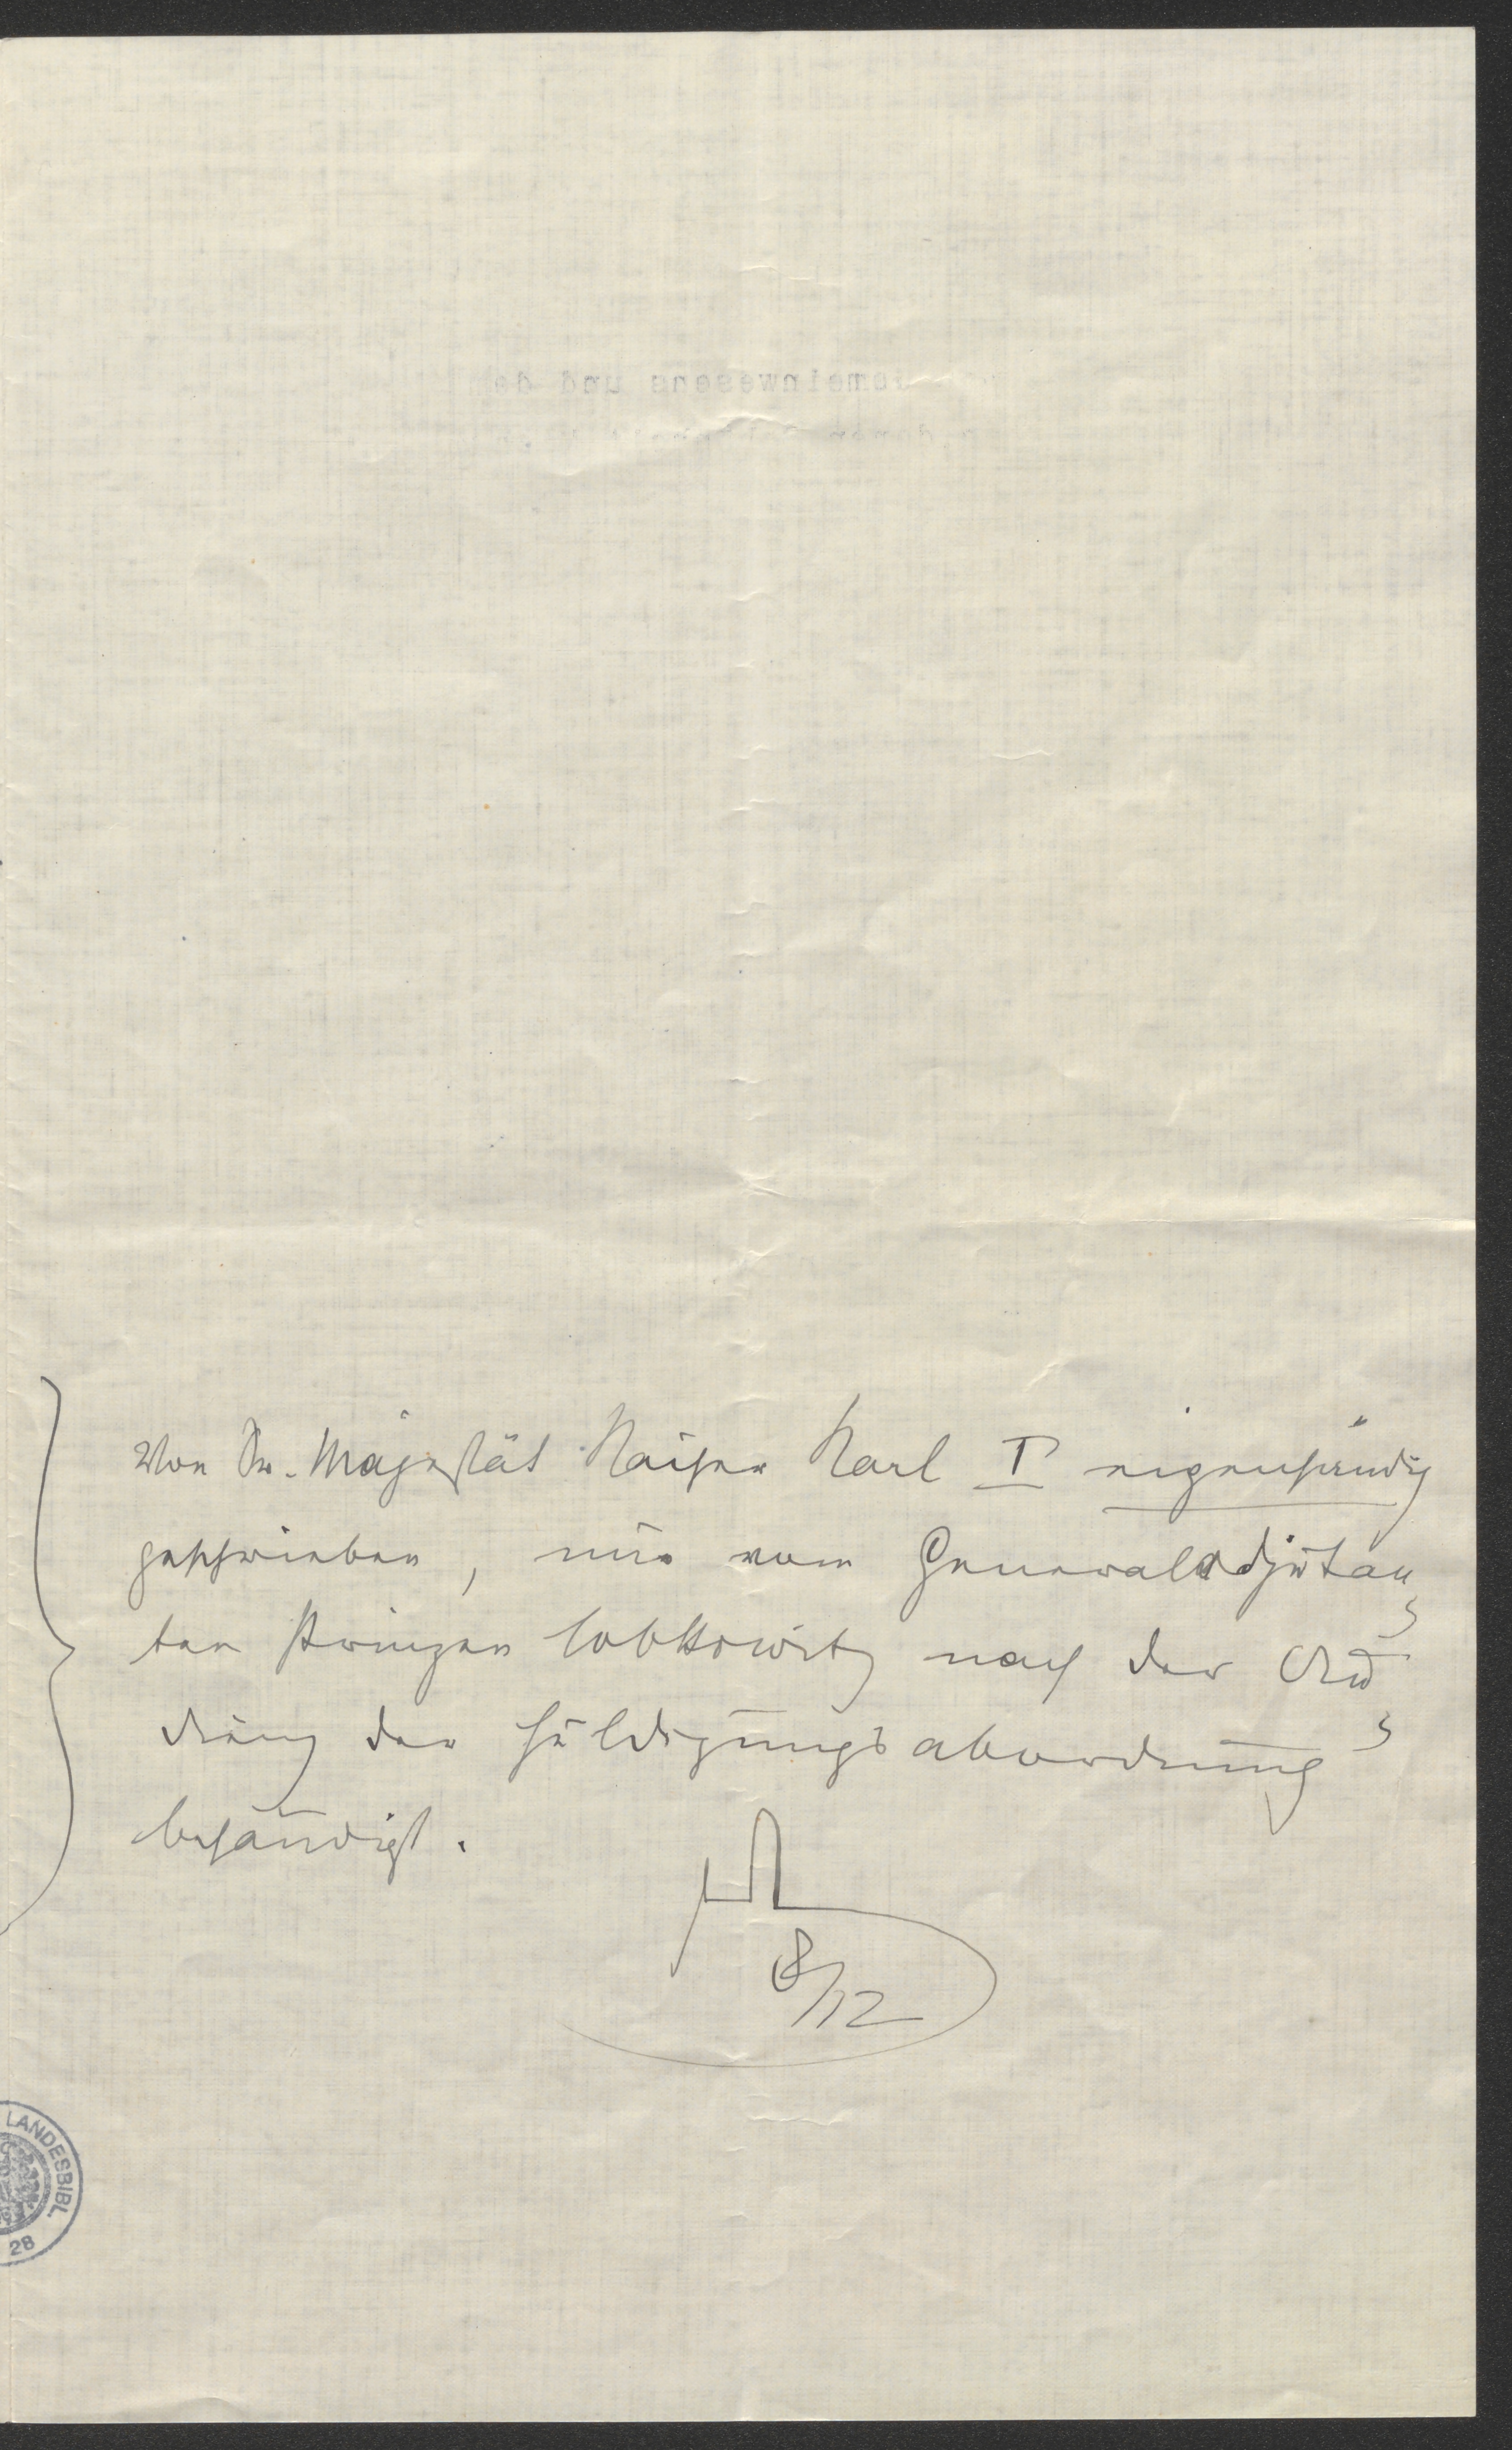 Von Sr. Majestät Kaiser Karl I eigenhändig
geschrieben, mir vom Generaladjutan
ten Prinzen Lobkowitz nach der
der Huldigungsabordnung
behändigt.
8/12
LANDESBIBL
28